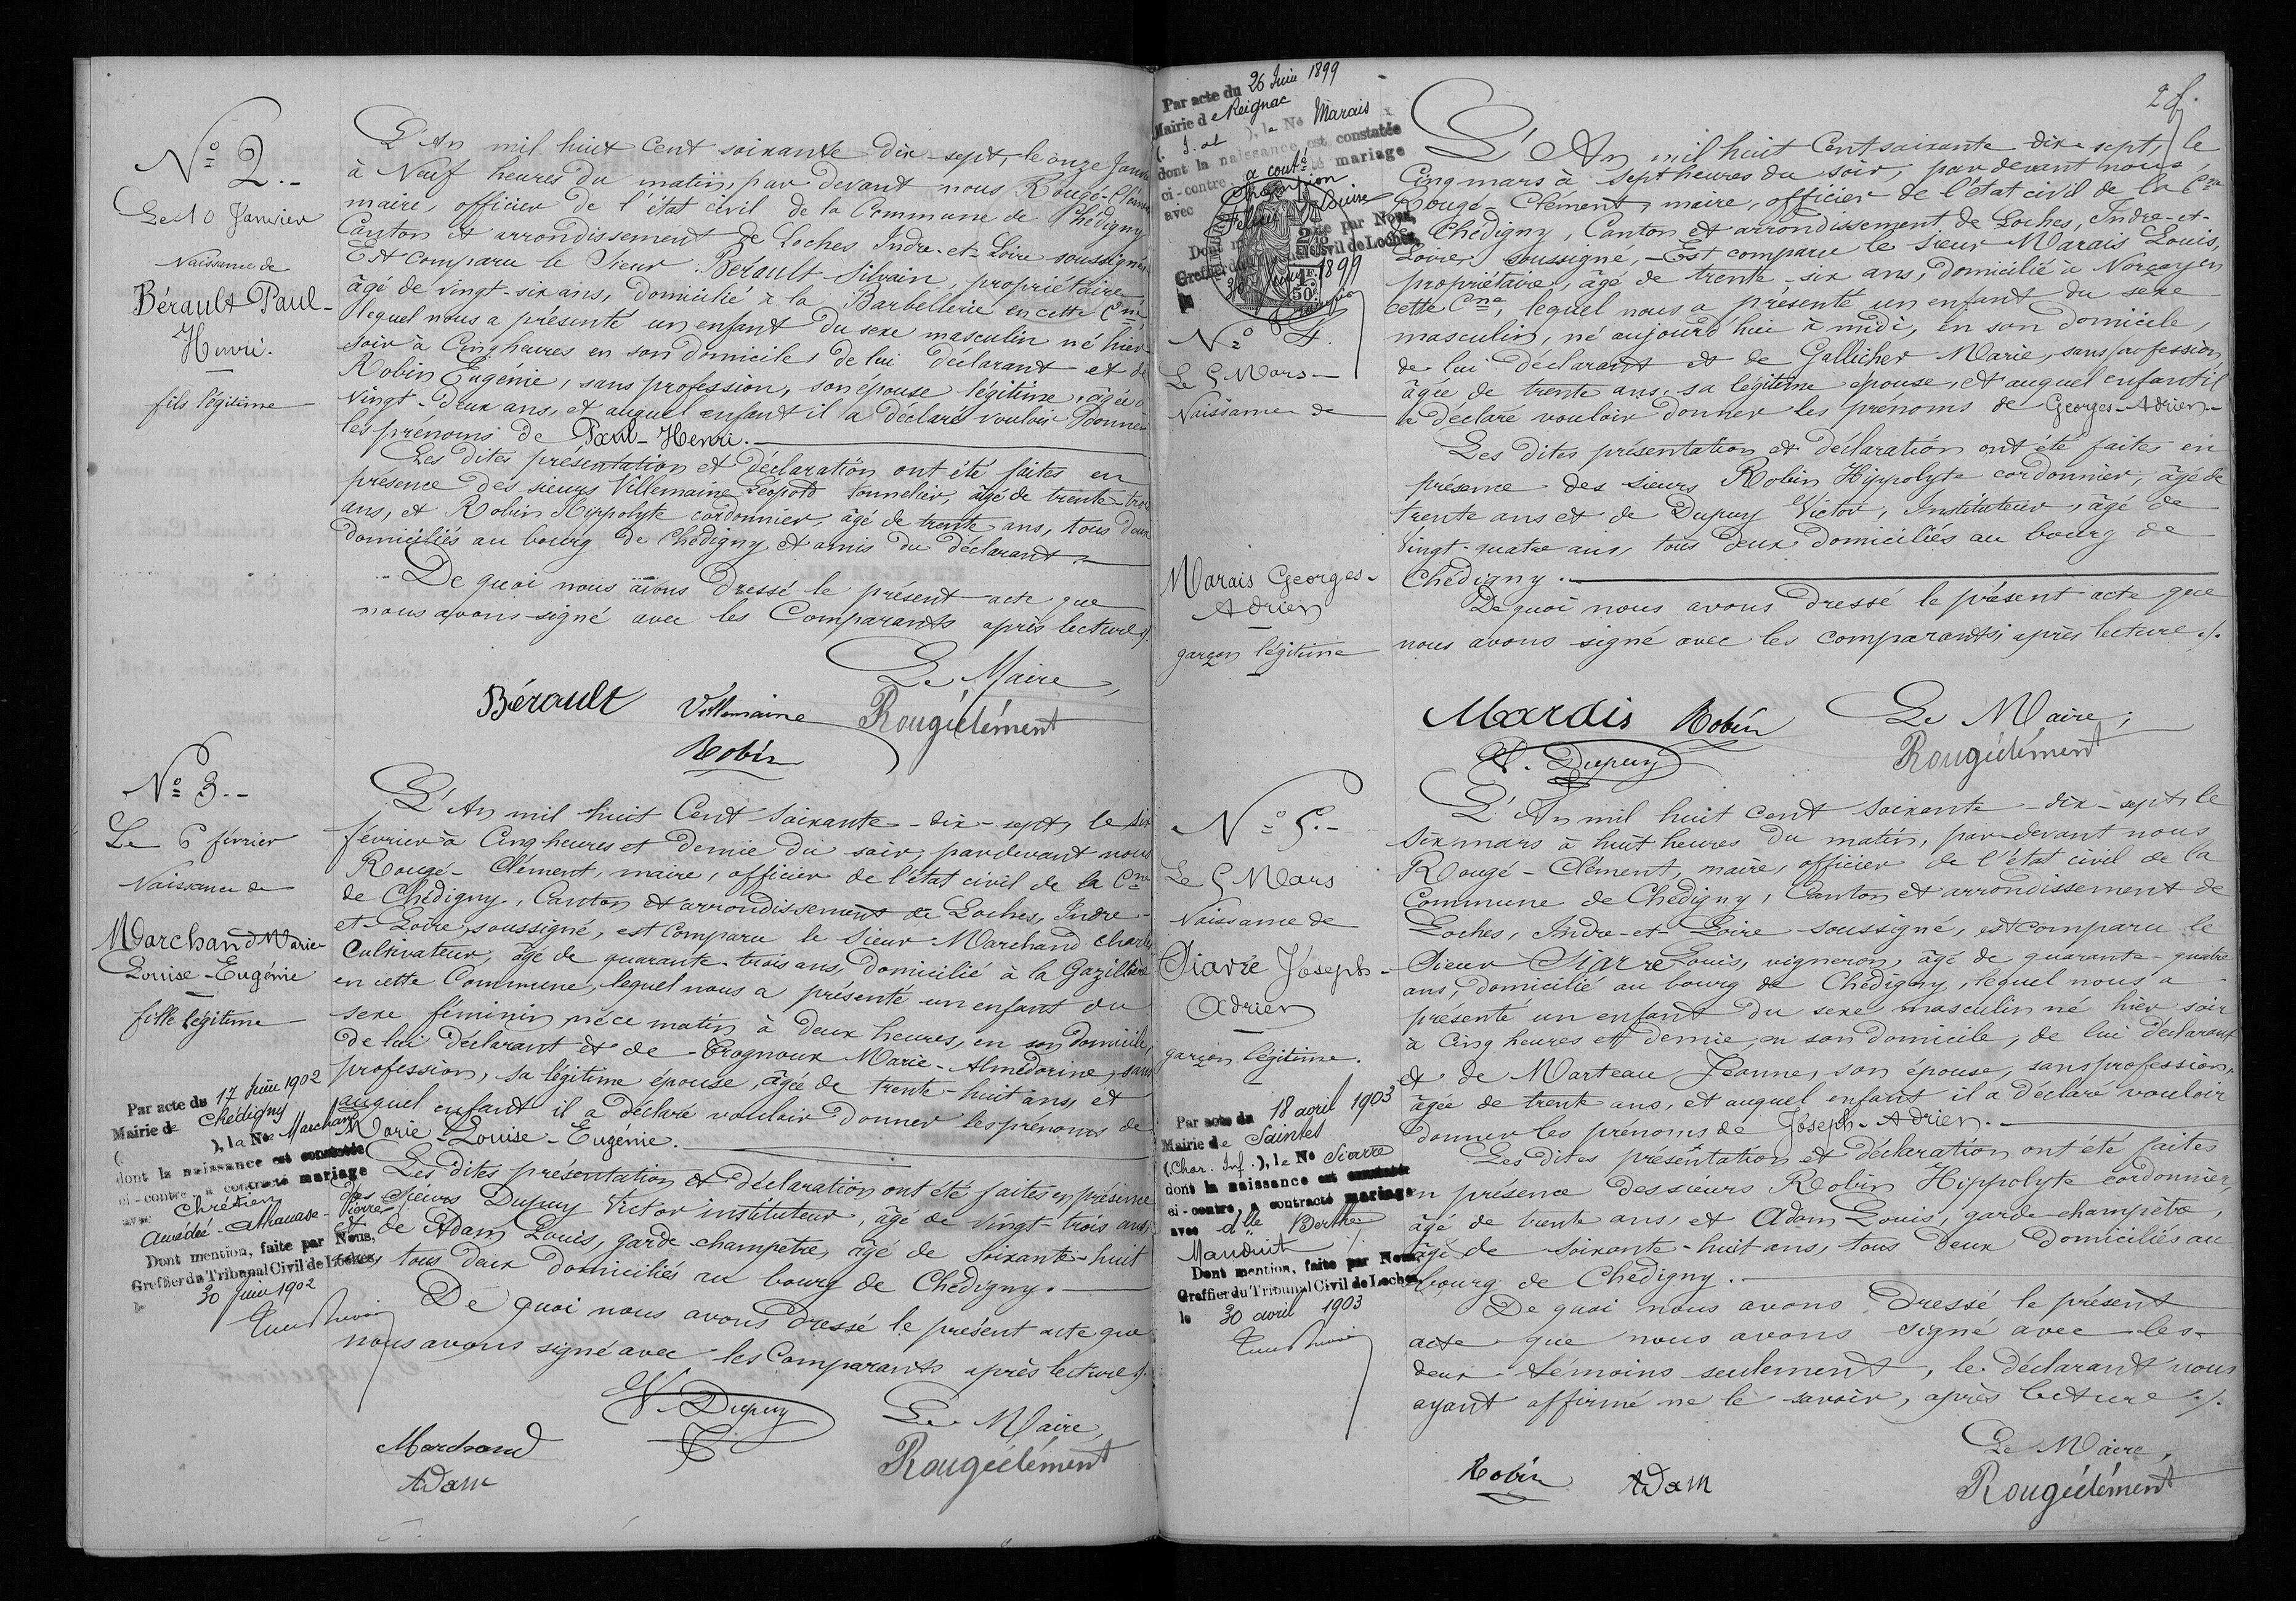 N° 2.-
Le 10 Janvier
Naissance de
Bérault Paul-
Henri.
fils légitime
L'An mil huit Cent soixante dix-sept, le onze Janvier
à Neuf heures du matin, par devant nous Rougé-Clément
maire, officier de l'état civil de la Commune de Chédigny
Canton et arrondissement de Loches Indre-et-Loire soussigné,
Est comparu le Sieur Bérault Silvain, propriétaire,
âgé de vingt-six ans, domicilié à la Barbellerie en cette Cne,
lequel nous a présenté un enfant du sexe masculin né hier
soir à Cinq heures en son domicile, de lui déclarant et de
Robin Eugénie, sans profession, son épouse légitime, âgée de
vingt-deux ans, et auquel enfant il a déclaré vouloir donner
les prénoms de Paul-Henri.
Les dites présentation et déclaration ont été faites en
présence des sieurs Villemaine Léopold tonnelier, âgé de trente-trois
ans, et Robin Hippolyte cordonnier, âgé de trente ans, tous deux
domiciliés au bourg de Chédigny et amis du déclarant.
De quoi nous avons dressé le présent acte que
nous avons signé avec les Comparants après lecture ./.
Le Maire,
Bérault Villemaine Rougéclément
Robin
N° 3.-
Le 6 février
Naissance de
Marchand Marie
Louise-Eugénie
fille légitime
Par acte du 17 Juin 1902
Mairie de Chédigny
( ), la Née Marchand
dont la naissance est constatée
ci-contre a contracté mariage
avec Chrétien
Amédée-Athanase-Pierre
Dont mention, faite par Nous,
Greffier du Tribunal Civil de Loches,
le 30 Juin 1902
L'An mil huit Cent Soixante-dix-sept, le six
février à Cinq heures et demie du soir, pardevant nous
Rougé-Clément, maire, officier de l'état civil de la Cne
de Chédigny, Canton et arrondissement de Loches, Indre-
et-Loire, soussigné, est Comparu le Sieur Marchand Charles
Cultivateur, âgé de quarante-trois ans, domicilié à la Gazillère
en cette Commune, lequel nous a présenté un enfant du
sexe féminin né ce matin à deux heures, en son domicile,
de lui déclarant et de Trognoux Marie-Almédorine, sans
profession, sa légitime épouse, âgée de trente-huit ans, et
auquel enfant il a déclaré vouloir donner les prénoms de
Marie-Louise-Eugénie.
Les dites présentation et déclaration ont été faites en présence
des Sieurs Dupuy Victor instituteur, âgé de vingt-trois ans,
et de Adam Louis, garde-champêtre, âgé de soixante-huit
ans, tous deux domiciliés au bourg de Chédigny.
De quoi nous avons dressé le présent acte que
nous avons signé avec les Comparants après lecture ./.
V. Dupuy Le Maire,
Marchand Rougéclément
Adam
Par acte du 26 Juin 1899
Mairie de Reignac
( I. et ), le Né Marais
dont la naissance est constatée
ci-contre a conté mariage
avec
Dont mention faite par Nous,
Greffier du Tribunal Civil de Loches,
le 30 1899
N° 4.
Le 5 Mars
Naissance de
Marais Georges-
Adrien
garçon légitime
L'An mil huit Cent soixante dix-sept, le
Cinq mars à sept heures du soir, par devant nous
Rougé-Clément, maire, officier de l'état civil de la Cne
de Chédigny, Canton et arrondissement de Loches, Indre-et-
Loire, soussigné,- Est comparu le sieur Marais Louis,
propriétaire, âgé de trente-six ans, domicilié à Norçay en
cette Cne, lequel nous a présenté un enfant du sexe
masculin, né aujourd'hui à midi, en son domicile,
de lui déclarant et de Gallicher Marie, sans profession
âgée de trente ans, sa légitime épouse, et auquel enfant il
a déclaré vouloir donner les prénoms de Georges-Adrien.-
Les dites présentation et déclaration ont été faites en
présence des sieurs Robin Hippolyte cordonnier, âgé de
trente ans et de Dupuy Victor, Instituteur, âgé de
vingt-quatre ans, tous deux domiciliés au bourg de
Chédigny.
De quoi nous avons dressé le présent acte que
nous avons signé avec les comparants, après lecture ./.
Marais Robin Le Maire,
V. Dupuy Rougéclément
N° 5.-
Le 5 Mars
Naissance de
Siarre Joseph-
Adrien
garçon légitime.
Par acte du 18 avril 1903
Mairie de Saintes
(Char. Inf.), le Né Siarre
dont la naissance est constatée
ci-contre, a contracté mariage
avec dlle Berthe
Mauduit
Dont mention, faite par Nous,
Greffier du Tribunal Civil de Loches,
le 30 avril 1903
L'An mil huit cent soixante-dix-sept, le
six mars à huit heures du matin, par-devant nous
Rougé-Clément, maire, officier de l'état civil de la
Commune de Chédigny, Canton et arrondissement de
Loches, Indre-et-Loire soussigné, est comparu le
Sieur Siarre Louis, vigneron, âgé de quarante-quatre
ans, domicilié au bourg de Chédigny, lequel nous a
présenté un enfant du sexe masculin né hier soir
à Cinq heures et demie, en son domicile, de lui déclarant
et de Marteau Jeanne, son épouse, sans profession,
âgée de trente ans, et auquel enfant il a déclaré vouloir
donner les prénoms de Joseph-Adrien.
Les dites présentation et déclaration ont été faites
en présence des sieurs Robin Hippolyte cordonnier,
âgé de trente ans, et Adam Louis, garde champêtre,
âgé de soixante-huit ans, tous deux domiciliés au
bourg de Chédigny.
De quoi nous avons dressé le présent
acte que nous avons signé avec les
deux témoins seulement, le déclarant nous
ayant affirmé ne le savoir, après lecture ./.
Le Maire,
Robin Adam Rougéclément